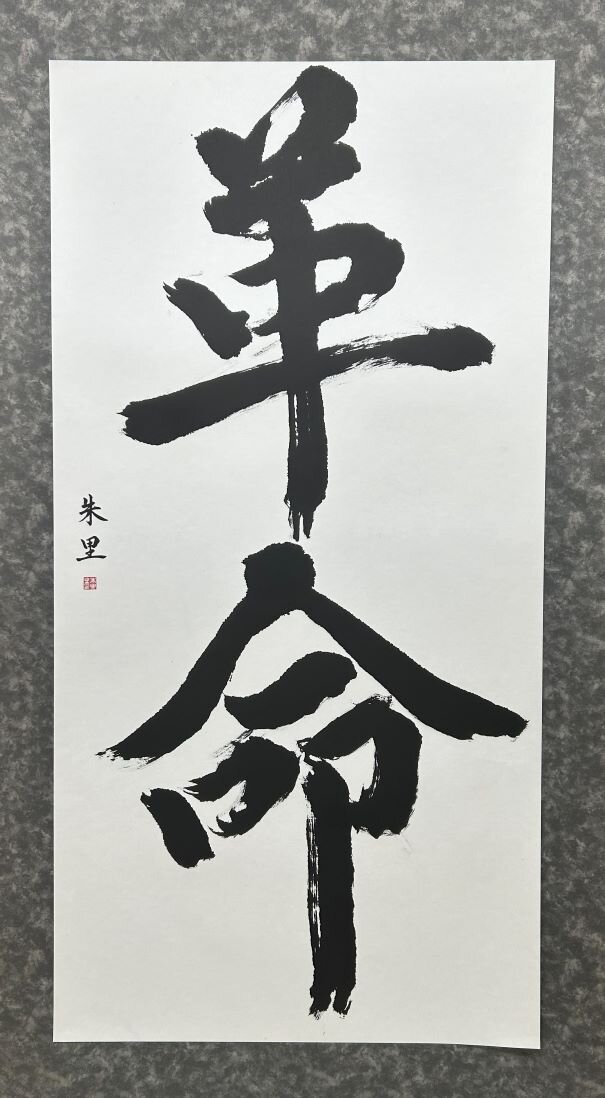 革命
朱里